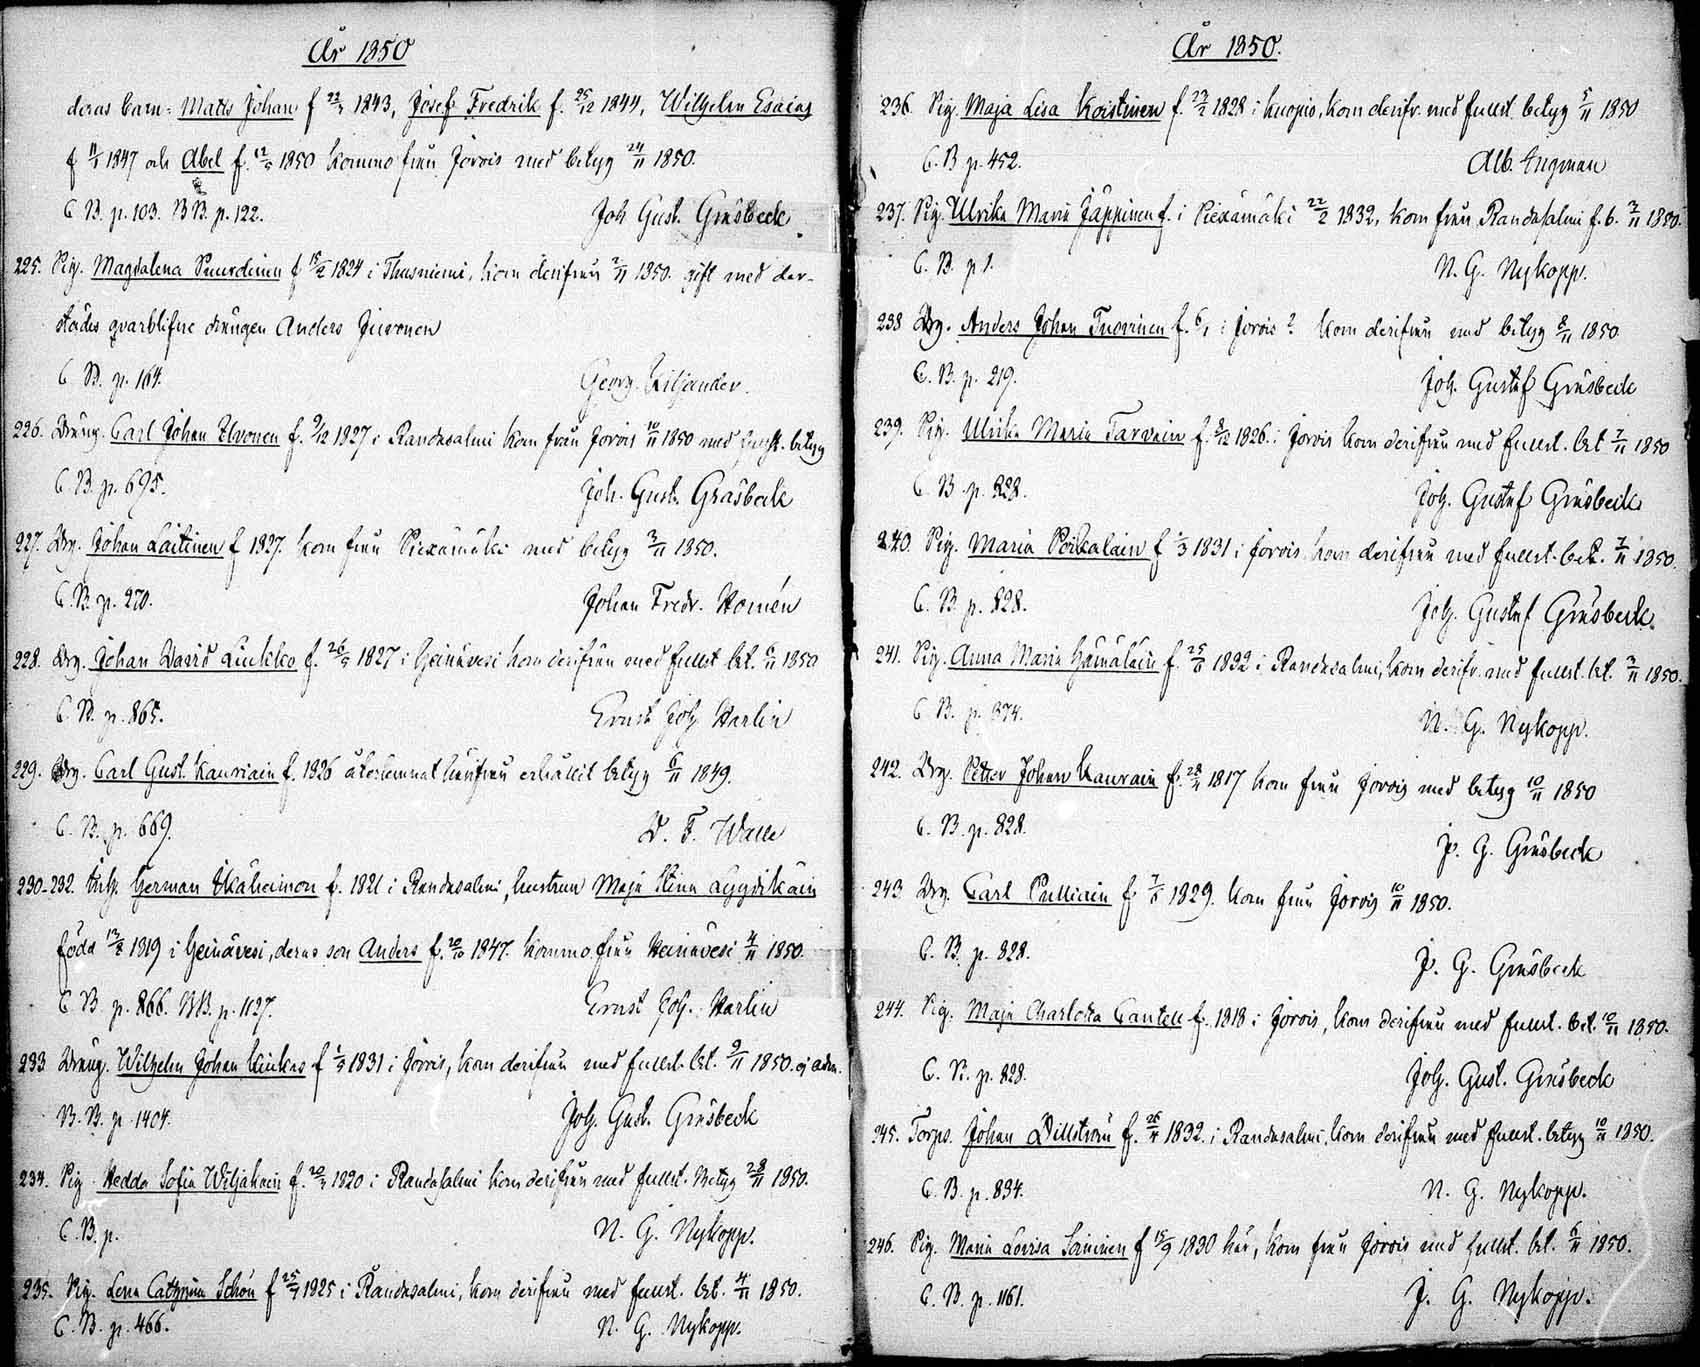 År 1850
deras barn: Matts Johan f 1843, Josef Fredrik f. 25/12 1844, Wilhelm Esaias
f 1847 och Abel f. 1850 kommo från Jorois med betyg 24/11 1850.
C B. p. 103. B B. p. 122.
Joh Gust. Gråsbeck.
225. Pig. Magdalena f 15/2 1824 i Thusniemi, kom derifrån 2/11 1850. gift med der-
städes qvarblifne drängen Anders Juvonen
C B. p. 164.
Georg. Kiljander.
226. Dräng. Carl Johan Ilvonen f. 9/12 1827 i Randasalmi kom från Jorois 10/11 1850 med betyg
C. B. p. 695.
Joh. Gust. Gråsbeck
227. Drg. Johan Laitinen f 1827. kom från Piexämäki med betyg 3/11 1850.
C. B. p. 270.
Johan Fredr. Homén
228. Drg. Johan David Liukko f. 26/5 1827 i Heinävesi kom derifrån med fullst. bet. 6/11 1850
C. B. p. 865.
Ernst Joh. Harlin
229. Drg. Carl Gust. Kauriain f. 1826 återlemnat härifrån erhållit betyg 6/11 1849.
C. B. p. 669.
D. F. Walle
230-232. Inh. Herman Ikäheimon f. 1821 i Randasalmi, hustrun Maja Stina Lyydikäin
föda 1819 i Heinävesi, deras son Anders f. 20/10 1847. kommo från Heinävesi 4/11 1850.
C B p. 866. BB. p. 1127.
Ernst Joh. Harlin
233 Dräng. Wilhelm Johan Kinkas f 1831 i Jorois, kom derifrån med fullst. bet. 9/11 1850. ej adm.
B. B. p. 1404.
Joh. Gust. Gråsbeck
234. Pig. Hedda Sofia Wiljakain f. 1820 i Randasalmi kom derifrån med fullst. Betyg 28/11 1850.
C. B. p.
N. G. Nykopp.
235. Pig. Lena Cathrina Schön f 1825 i Randasalmi, kom derifrån med fullst. bet. 4/11 1850.
C. B. p. 466.
N. G. Nykopp.
År 1850.
236. Pig. Maja Lisa Koistinen f. 1828 i Kuopio, kom derifr. med fullst. betyg 5/11 1850
C. B p. 452.
Alb. Ingman
237. Pig. Ulrika Maria Jäppinen f. i Piexämäki 22/2 1832, kom från Randasalmi f. b. 3/11 1850.
C. B. p 1.
N. G. Nykopp.
238 Drg. Anders Johan Tuovinen f. 6/1 i Jorois? kom derifrån med betyg 8/11 1850
C. B. p. 219.
Joh. Gustaf Gråsbeck
239. Pig. Ulrika Maria Tarvain f. 8/12 1826 i Jorois kom derifrån med fullst. bet 7/11 1850
C. B. p. 828.
Joh. Gustaf Gråsbeck
240. Pig. Maria Poikalain f 1/3 1831 i Jorois kom derifrån med fullst. bet. 7/11 1850.
C. B. p. 828.
Joh. Gustaf Gråsbeck.
241. Pig. Anna Maria Hämäläin f. 1832 i Randasalmi, kom derifr. med fullst. bet. 3/11 1850.
C B. p. 374.
N. G. Nykopp.
242. Drg. Petter Johan Kaurain f. 1817 kom från Jorois med betyg 10/11 1850
C. B. p. 828.
J. G. Gråsbeck
243 Drg. Carl Pulliain f 1829. kom från Jorois 10/11 1850.
C. B. p. 828.
J. G. Gråsbeck
244. Pig. Maja Charlotta Cantell f. 1818 i Jorois, kom derifrån med fullst. bet. 10/11 1850.
C. B. p. 828.
Joh. Gust. Gråsbeck
245. Torps. Johan Dillström f. 1832. i Randasalmi, kom derifrån med fullst. betyg 10/11 1850.
C. B. p. 834.
N. G. Nykopp.
246. Pig. Maria Lovisa Soininen f 15/9 1830 här, kom från Jorois med fullst. bet. 6/11 1850.
C. B. p. 1161.
J. G. Nykopp.